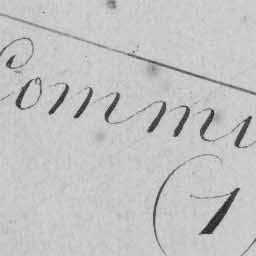 Commu
(1)